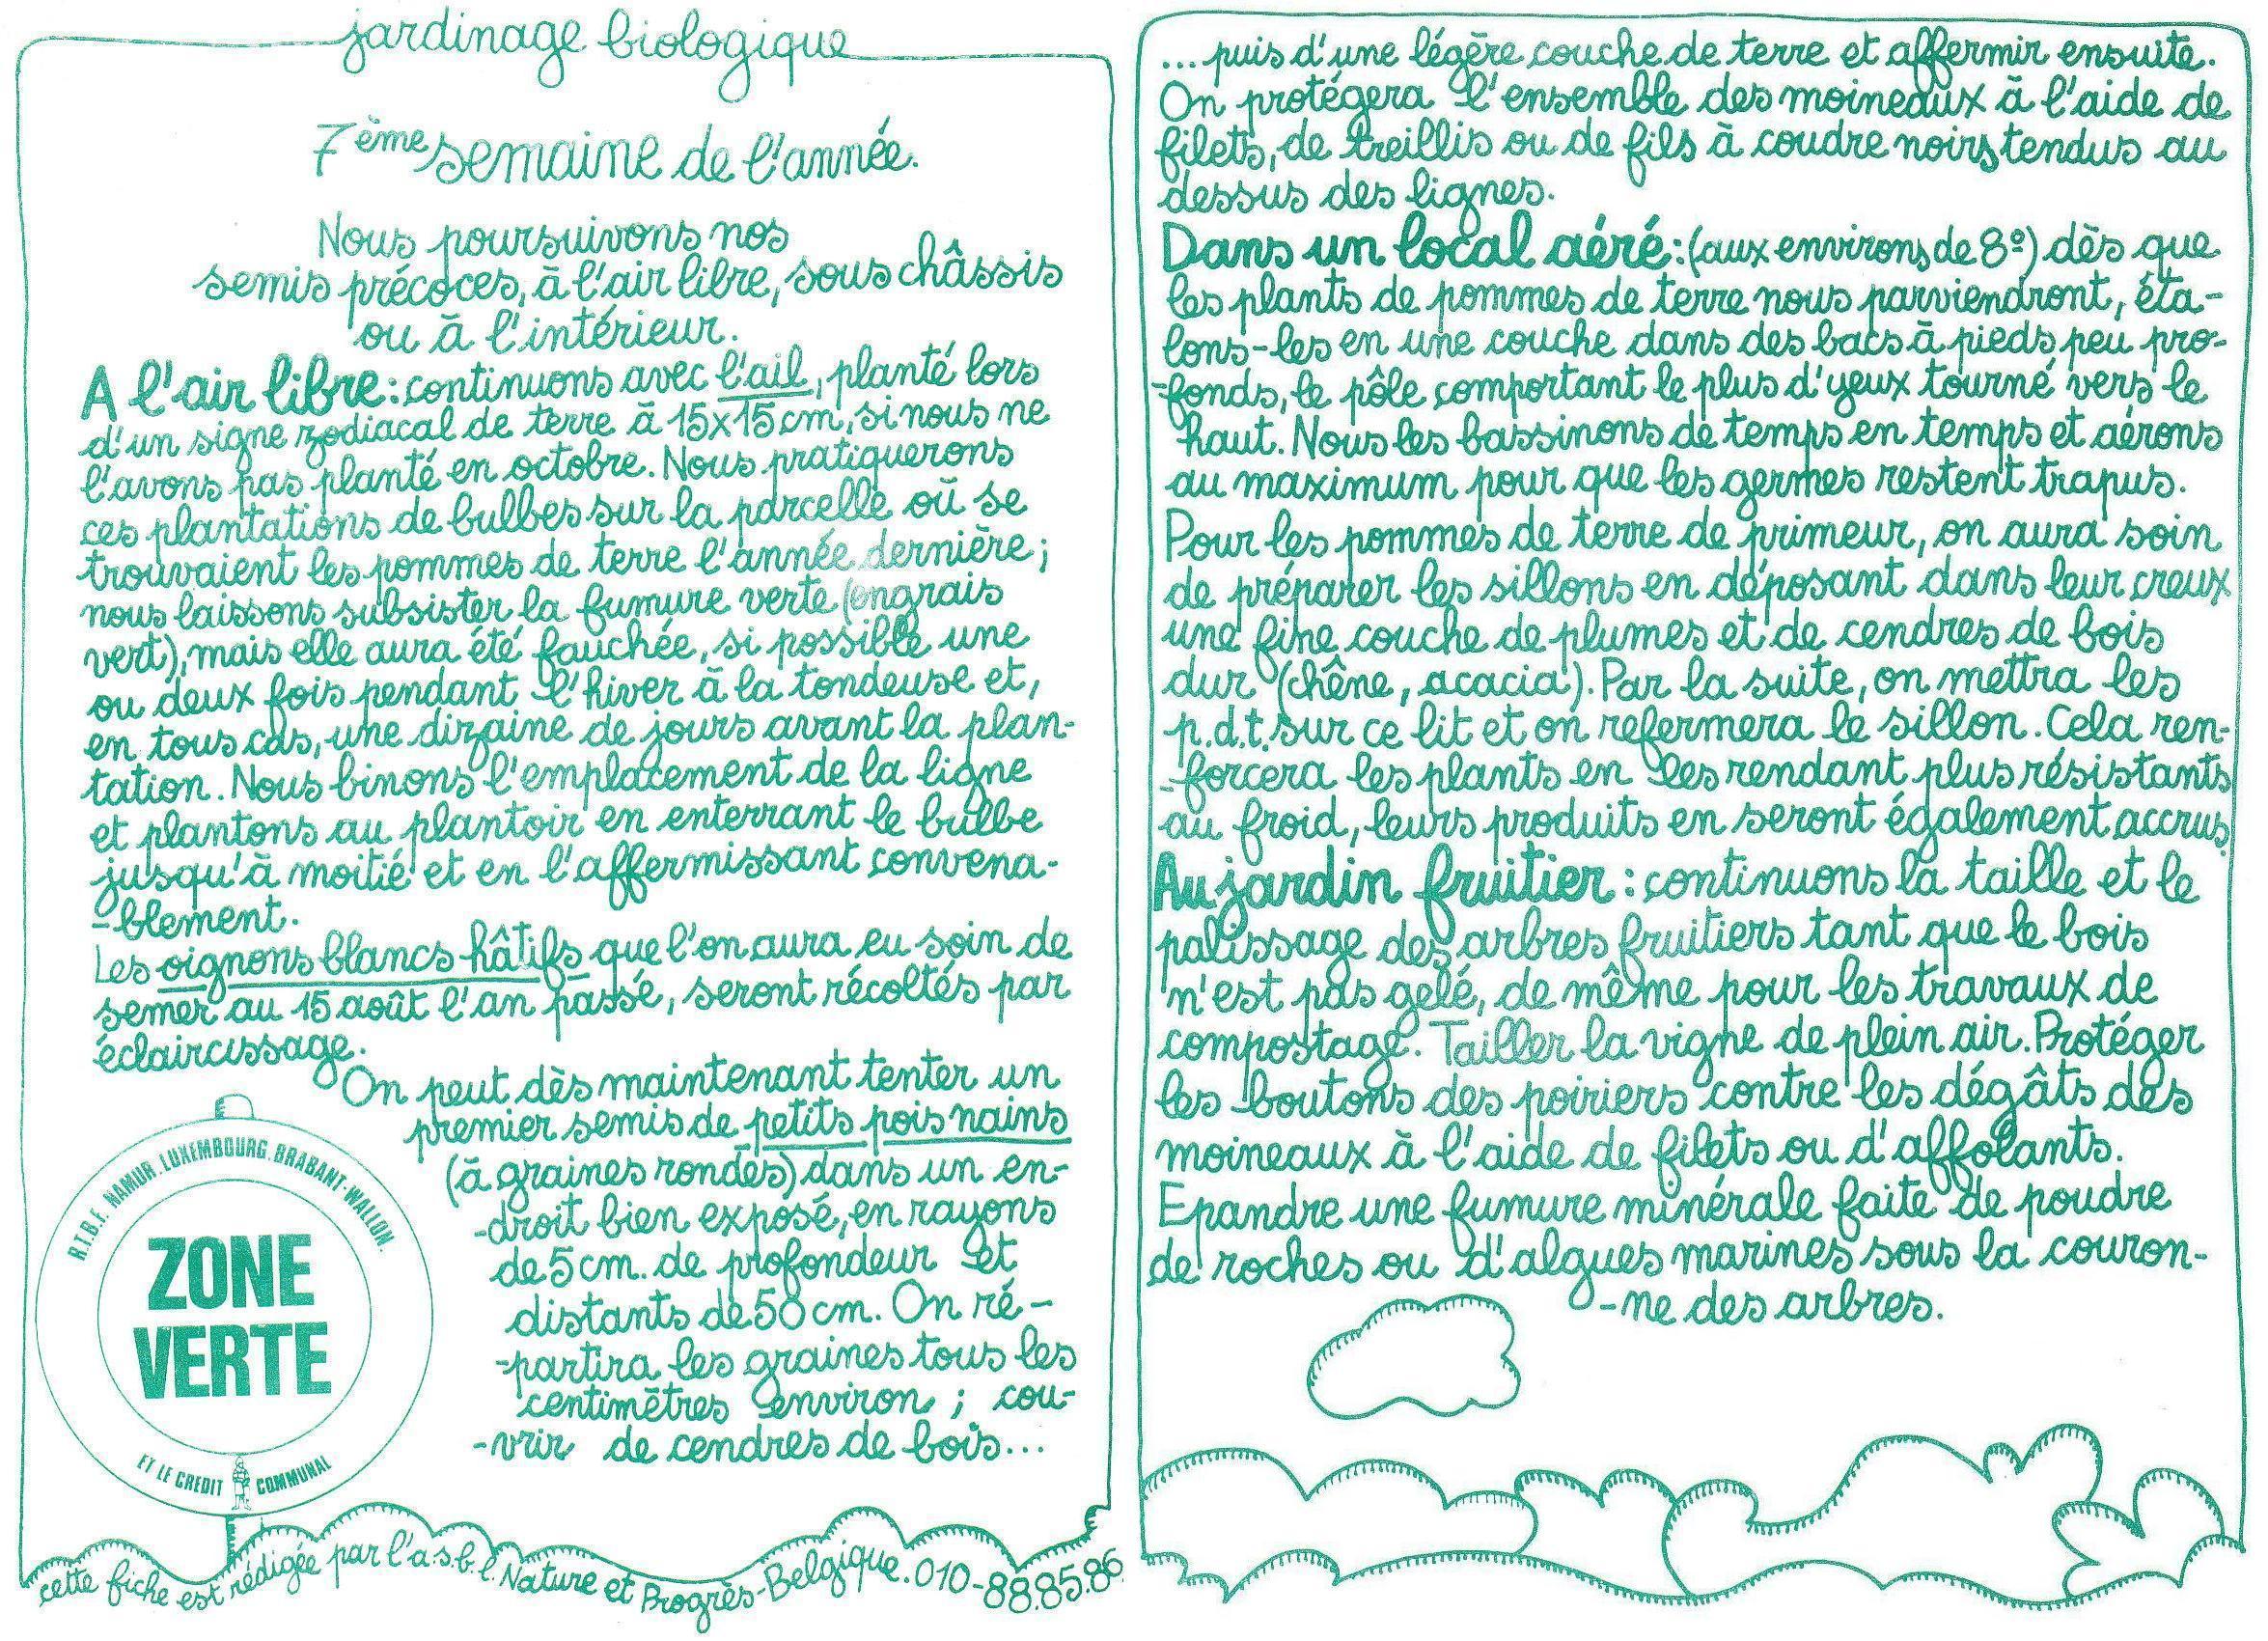 jardinage biologique
7ème semaine de l'année.
Nous poursuivons nos
semis précoces, à l'air libre, sous châssis
ou à l'intérieur.
A l'air libre : continuons avec l'ail, planté lors
d'un signe zodiacal de terre à 15x15 cm, si nous ne
l'avons pas planté en octobre. Nous pratiquerons
ces plantations de bulbes sur la parcelle où se
trouvaient les pommes de terre l'année dernière ;
nous laissons subsister la fumure verte (engrais
vert), mais elle aura été fauchée, si possible une
ou deux fois pendant l'hiver à la tondeuse et,
en tous cas, une dizaine de jours avant la plan-
tation. Nous binons l'emplacement de la ligne
et plantons au plantoir en enterrant le bulbe
jusqu'à moitié et en l'affermissant convena-
-blement.
Les oignons blancs hâtifs que l'on aura eu soin de
semer au 15 août l'an passé, seront récoltés par
éclaircissage.
On peut dès maintenant tenter un
premier semis de petits pois nains
(à graines rondes) dans un en-
-droit bien exposé, en rayons
de 5 cm. de profondeur et
distants de 50 cm. On ré-
-partira les graines tous les
centimètres environ ; cou-
-vrir de cendres de bois...
R.T.B.F. NAMUR. LUXEMBOURG. BRABANT-WALLON.
ZONE
VERTE
ET LE CREDIT COMMUNAL
cette fiche est rédigée par l'a.s.b.l. Nature et Progrès-Belgique. 010-88.85.86.
... puis d'une légère couche de terre et affermir ensuite.
On protégera l'ensemble des moineaux à l'aide de
filets, de treillis ou de fils à coudre noirs tendus au
dessus des lignes.
Dans un local aéré : (aux environs de 8º) dès que
les plants de pommes de terre nous parviendront, éta-
lons-les en une couche dans des bacs à pieds peu pro-
-fonds, le pôle comportant le plus d'yeux tourné vers le
haut. Nous les bassinons de temps en temps et aérons
au maximum pour que les germes restent trapus.
Pour les pommes de terre de primeur, on aura soin
de préparer les sillons en déposant dans leur creux
une fine couche de plumes et de cendres de bois
dur (chêne, acacia). Par la suite, on mettra les
p.d.t. sur ce lit et on refermera le sillon. Cela ren-
-forcera les plants en les rendant plus résistants
au froid, leurs produits en seront également accrus.
Au jardin fruitier : continuons la taille et le
palissage des arbres fruitiers tant que le bois
n'est pas gelé, de même pour les travaux de
compostage. Tailler la vigne de plein air. Protéger
les boutons des poiriers contre les dégâts des
moineaux à l'aide de filets ou d'affolants.
Epandre une fumure minérale faite de poudre
de roches ou d'algues marines sous la couron-
-ne des arbres.